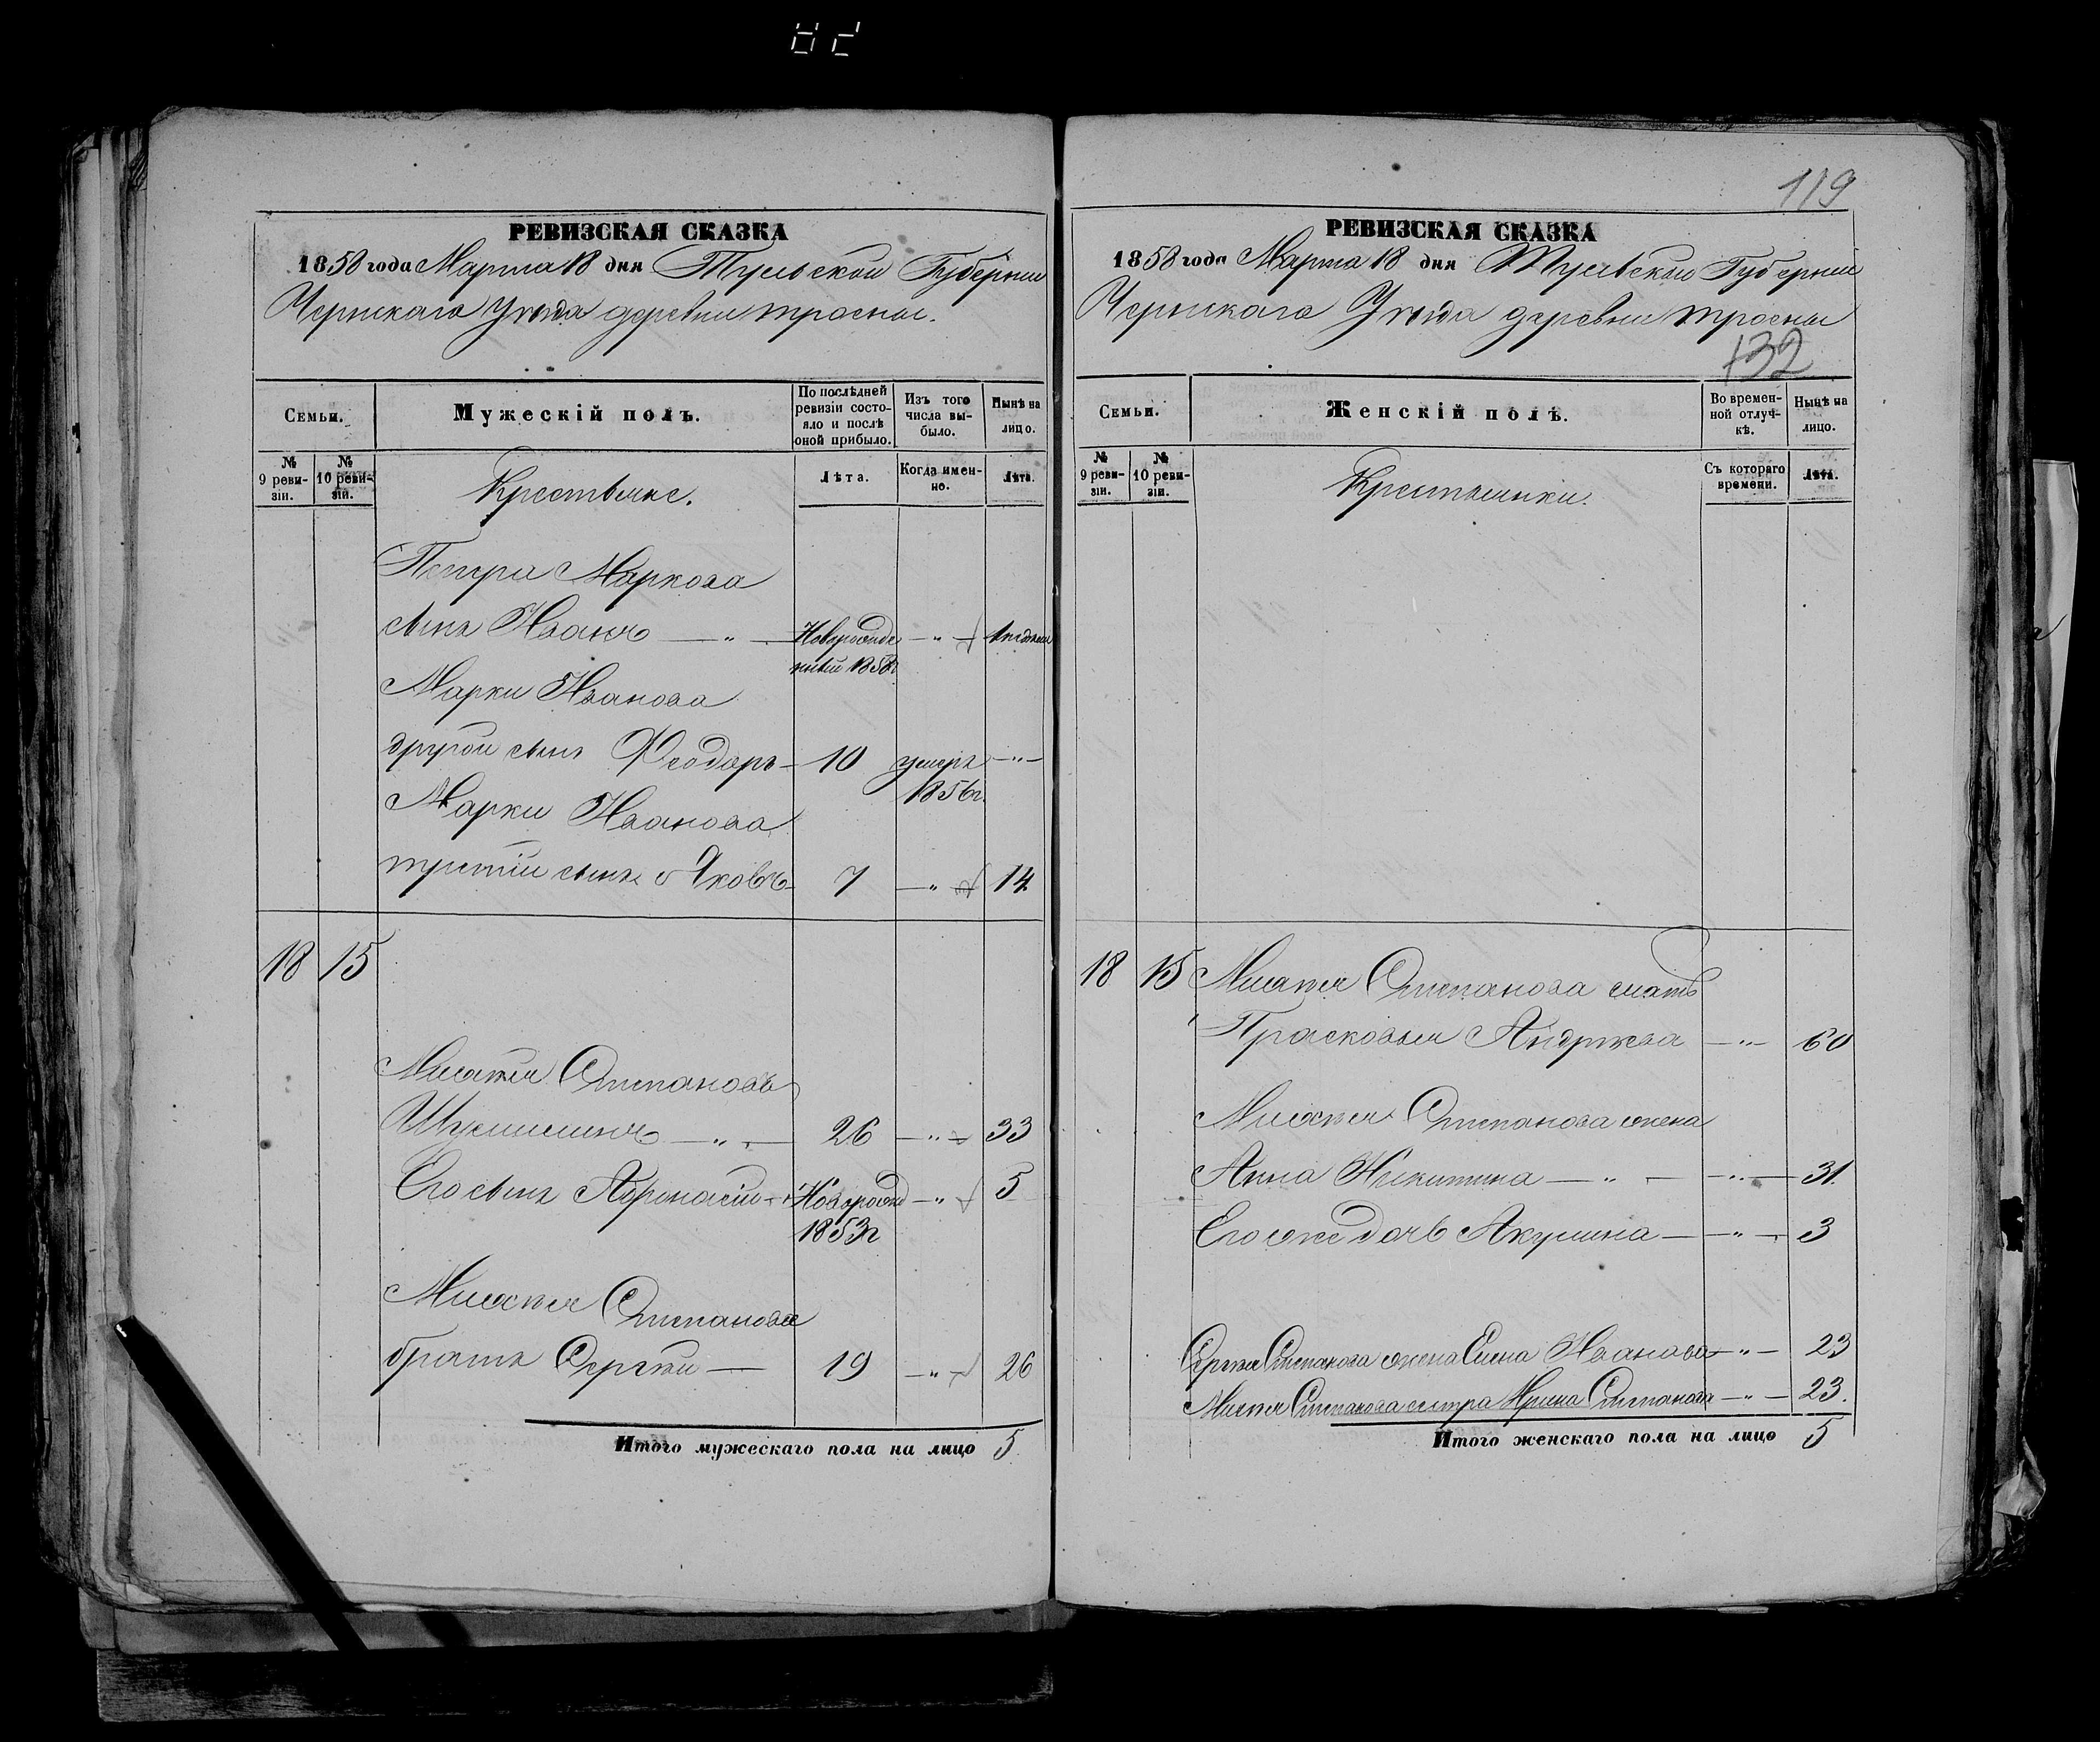 РЕВИЗСКАЯ СКАЗКА
1858 года Марта 18 дня Тульской Губернии
Чернскаго Уѣзда деревни тросны.
Семьи.
Мужескій полъ.
По послѣдней ревизіи состояло и послѣ оной прибыло.
Изъ того числа выбыло.
Нынѣ на лицо.
№ 9 ревизіи.
№ 10 ревизіи.
Крестьяне.
Лѣта.
Когда именно.
Лѣта.
Петра Маркова
сынъ Иванъ — " — Новорожденный 1858г — " —
Марки Иванова
другой сынъ Феодоръ — 10 умеръ 1856г. — " —
Марки Иванова
третій сынъ Яковъ — 7 — " — 14
18 15
Михѣя Степановъ
26 — " — 33
Его сынъ Афонасій — Новорожд 1853г — " — 5
Михѣя Степанова
братъ Сергѣй — 19 — " — 26
Итого мужескаго пола на лицо 5
119
РЕВИЗСКАЯ СКАЗКА
1858 года Марта 18 дня Тульской Губерніи
Чернскаго Уѣзда деревни тросны
132
Семьи.
Женскій полъ.
Во временной отлучкѣ.
Нынѣ на лицо.
№ 9 ревизіи.
№ 10 ревизіи.
Крестьянки.
Съ котораго времени.
Лѣта.
18 15 Михѣя Степанова мать
Прасковья Андрѣева — " — 60
Михѣя Степанова жена
Анна Никитина — " — — " — 31.
Его же дочь Акулина — — " — 3
Сергѣя Степанова жена Елена Иванова — " — 23
Михѣя Степанова сестра Ирина Степанова — " — 23.
Итого женскаго пола на лицо 5